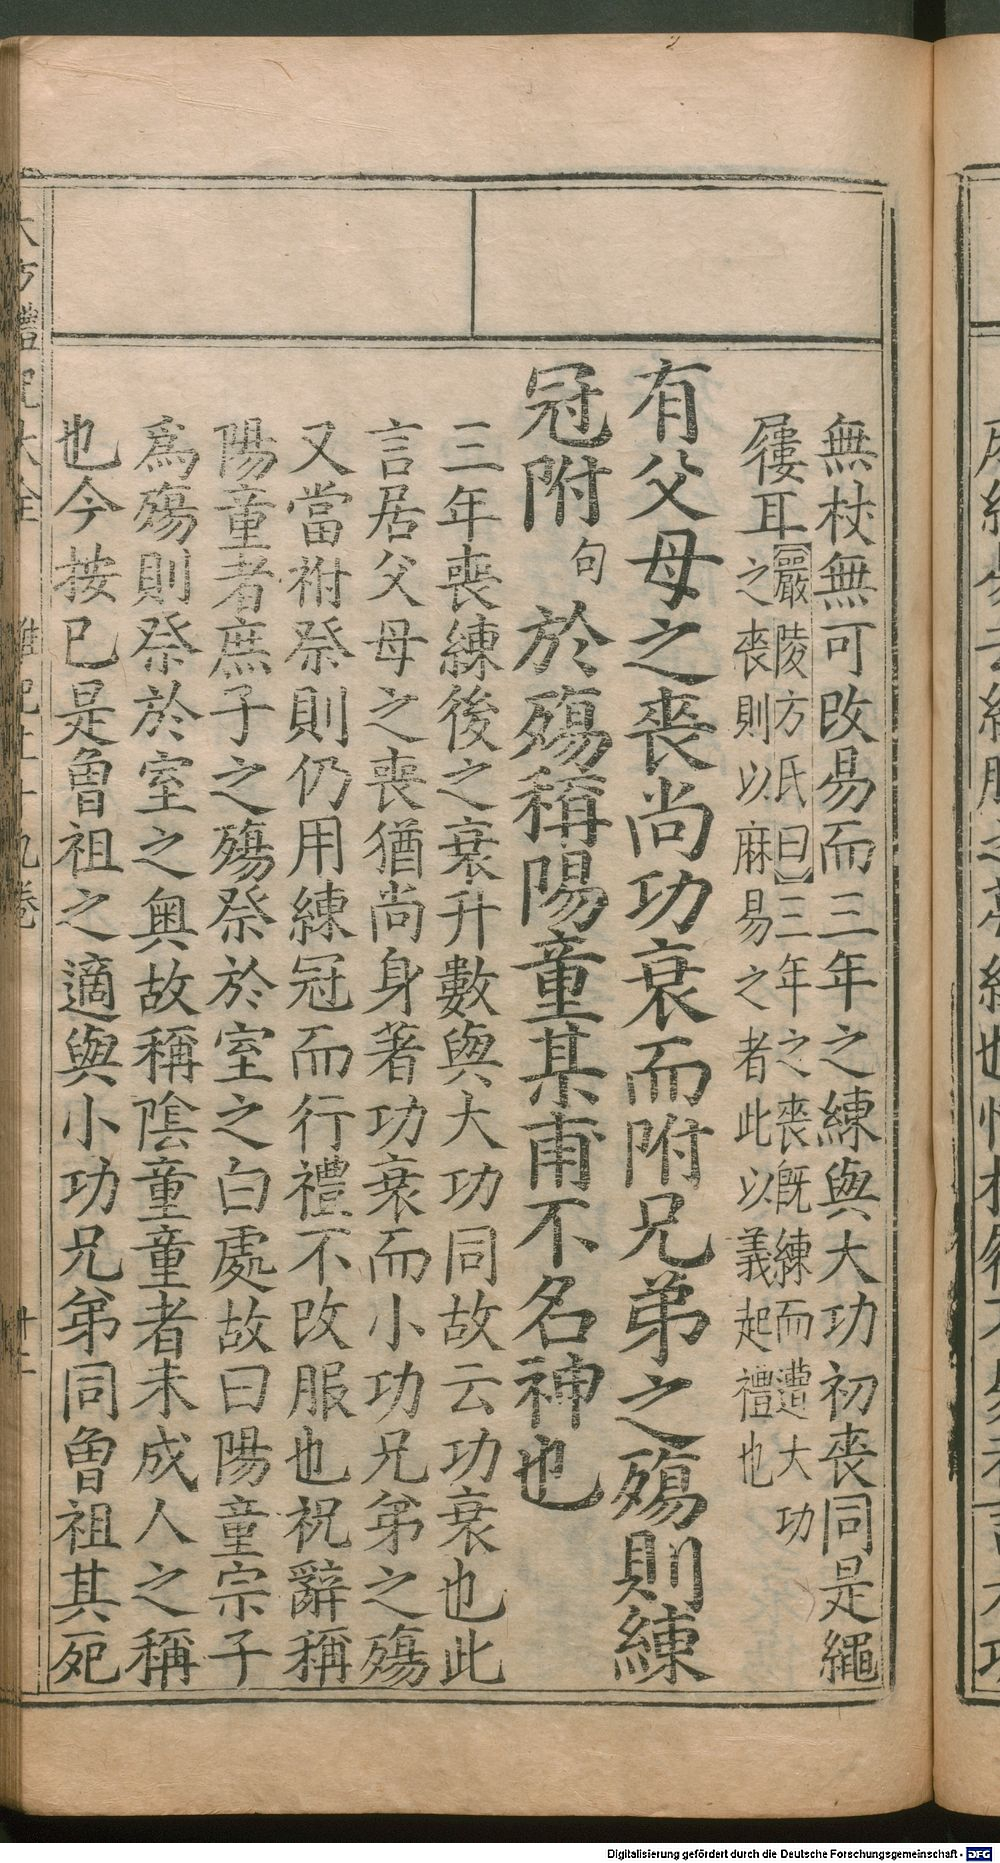 無杖無可改易而三年之練與大功初喪同是繩
屨耳【嚴陵方氏曰】三年之喪既練而遭大功
之喪則以麻易之者此以義起禮也
有父母之喪尚功衰而附兄弟之殤則練
冠附句於殤稱陽童某甫不名神也
三年喪練後之衰升數與大功同故云功衰也此
言居父母之喪猶尚身著功衰而小功兄弟之殤
又當祔祭則仍用練冠而行禮不改服也祝辭稱
陽童者庶子之殤祭於室之白處故曰陽童宗子
爲殤則祭於室之奥故稱隂童童者未成人之稱
也今按已是曾祖之適與小功兄弟同曾祖其死
Digitalisierung gefördert durch die Deutsche Forschungsgemeinschaft - DFG